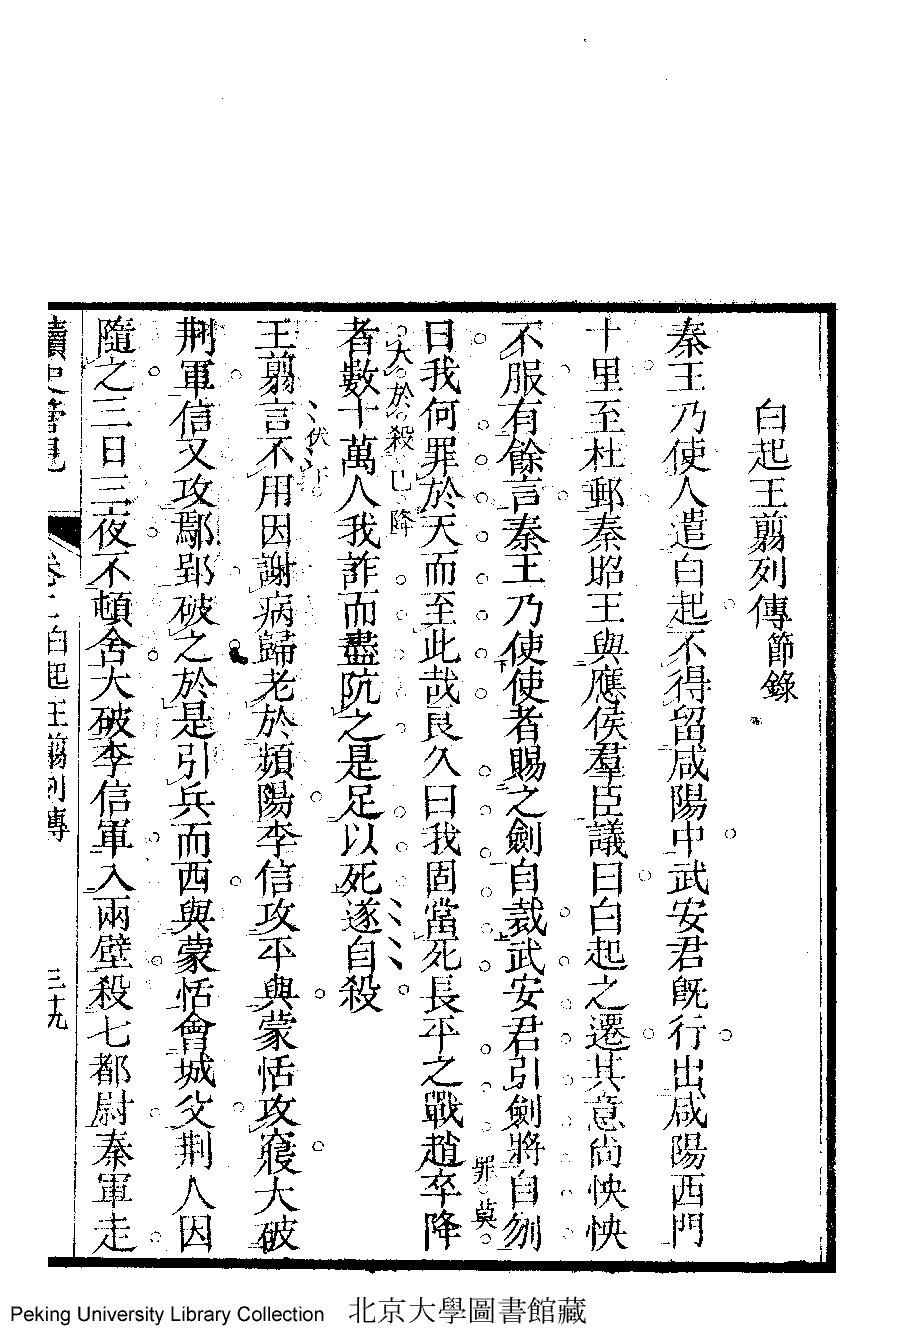 白起王翦列傳節錄
秦王乃使人遣白起不得留咸陽中武安君旣行出咸陽西門
十里至杜郵秦昭王與應侯羣臣議曰白起之遷其意尚怏怏
不服有餘言秦王乃使使者賜之劍自裁武安君引劍將自刎
罪莫
曰我何罪於天而至此哉良久曰我固當死長平之戰趙卒降
大於殺已降
者數十萬人我詐而盡阬之是足以死遂自殺
伏下
王翦言不用因謝病歸老於頻陽李信攻平與蒙恬攻寢大破
荆軍信又攻鄢郢破之於是引兵而西與蒙恬會城父荆人因
隨之三日三夜不頓舍大破李信軍入兩壁殺七都尉秦軍走
讀史管見
卷二白起王翦列傳
三十九
Peking University Library Collection 北京大學圖書館藏